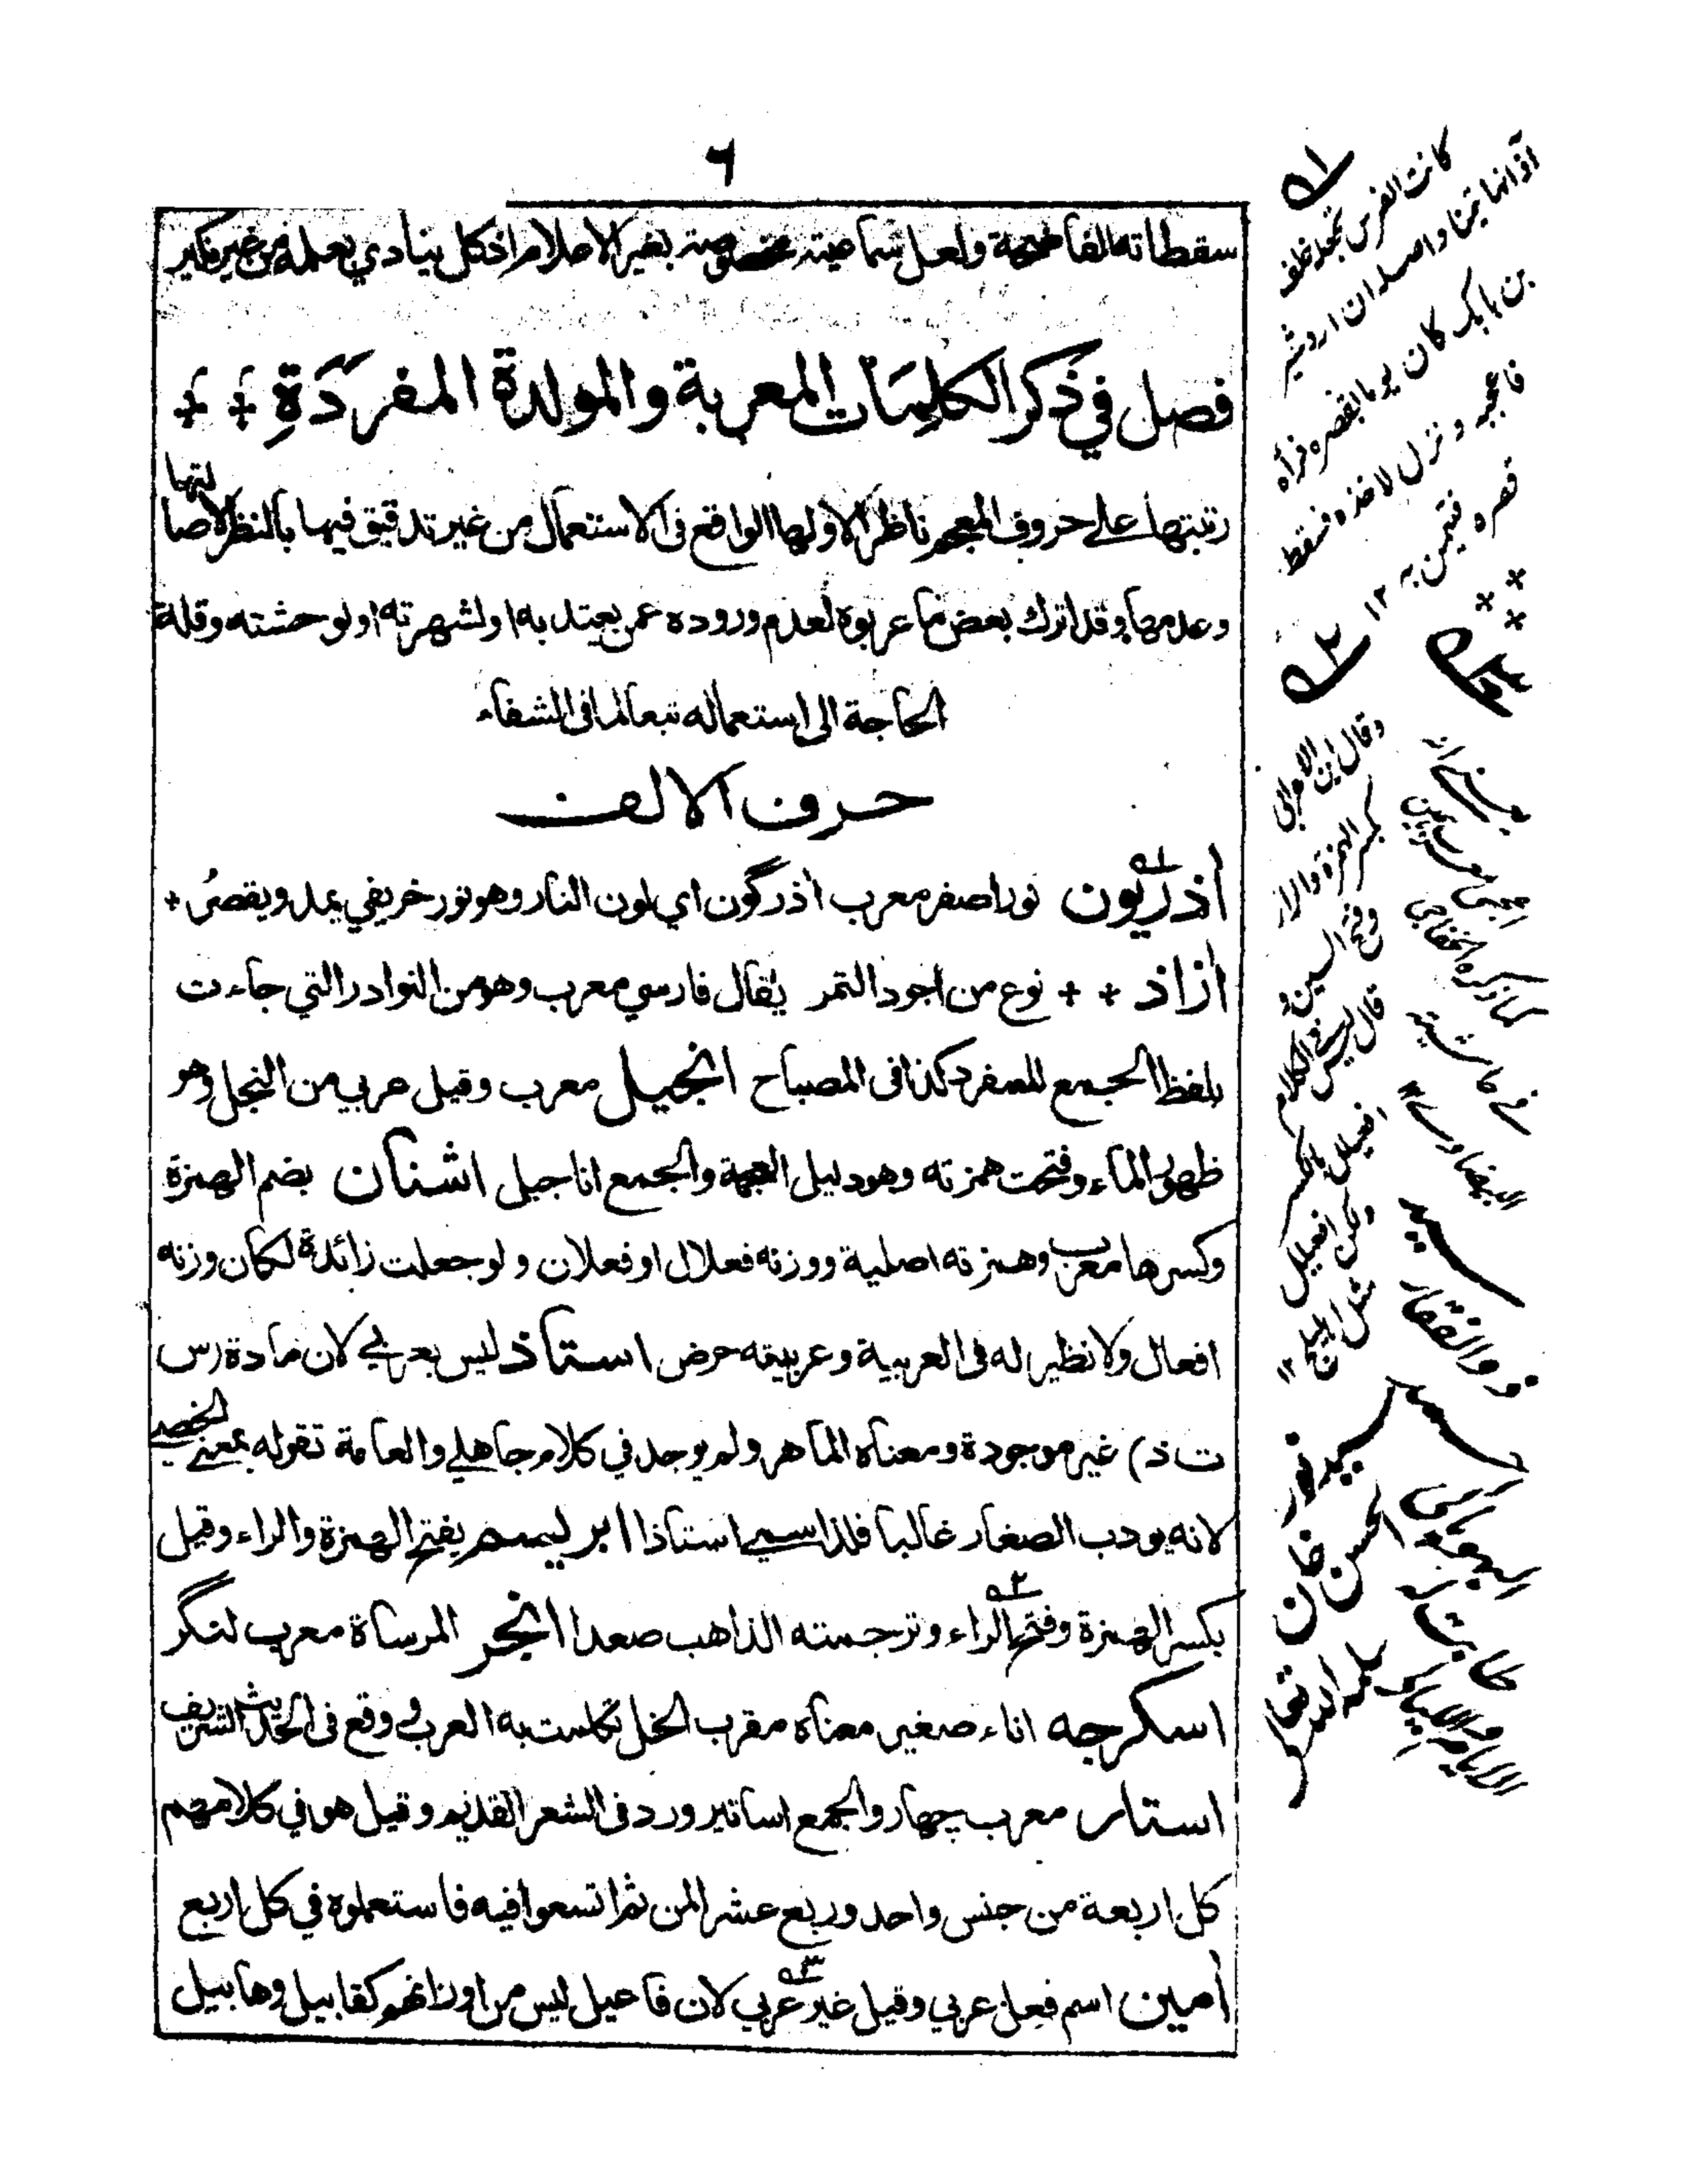 ٦
سقطاته الفاضحة ولعل شماعيته مخصوصة بغير الاعلام اذ كل ينادي بعلمه من غير نكير
فصل في ذكر الكلمات المعربة والمولدة المفردة
رتبتها على حروف المعجم ناظرا لاولها الواقع فى الاستعمال من غير تدقيق فيها بالنظر لاصالتها
وعدمها وقد اترك بعض ما عربوه لعدم وروده عمن يعتد به او لشهرته او لوحشته وقلة
الحاجة الى استعماله تبعا لما فى الشفاء
حرف الالف
اٰذريون نور اصفر معرب اٰذرگون اي لون النار وهو نور خريفي يمد ويقصر +
اٰزاذ + + نوع من اجود التمر يقال فارسي معرب وهو من النوادر التي جاءت
بلفظ الجمع للمفرد كذا فى المصباح انجيل معرب وقيل عربي من النجل وهو
ظهور الماء وفتحت همزته وهو دليل العجمة والجمع اناجيل اشنان بضم الهمزة
وكسرها معرب وهمزته اصلية ووزنه فعلال او فعلان ولو جعلت زائدة لكان وزنه
افعال ولا نظير له فى العربية وعربيته حرض استاذ ليس بعربي لان مادة (س
ت ذ) غير موجودة ومعناه الماهر ولم يوجد في كلام جاهلي والعامة تقوله بمعنى الخصي
لانه يودب الصغار غالبا فلذا سمي استاذا ابريسم بفتح الهمزة والراء وقيل
بكسر الهمزة وفتح الراء وترجمته الذاهب صعدا انجر المرساة معرب لنگر
اسكرجه اناء صغير معناه مقرب الخل تكلمت به العرب ووقع فى الحديث الشريف
استار معرب چهار والجمع اساتير ورد فى الشعر القديم وقيل هو في كلامهم
كل اربعة من جنس واحد وربع عشر المن ثم اتسعوا فيه فاستعملوه في كل اربع
اٰمين اسم فعل عربي وقيل غير عربي لان فاعيل ليس من اوزانهم كقابيل وهابيل
كانت الفرس تجعله خلف
اٰذانها تيمنا واصله ان اردشير
بن بابك كان يوما بقصره فراٰه
فاعجبه ونزل لاخذه فسقط
قصره فتيمن به ١٢
وقال ابن الاعرابي
بكسر الهمزة والراء
وفتح السين و
قال ليس في الكلام
افعيلل بالكسر
ولكن افعيلل
مثل اهليلج ١٢
سيد نور
الحسن خان
سلمه الله تعالى